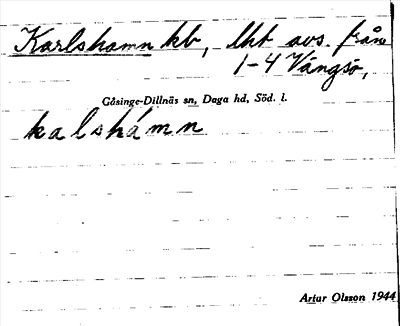 Karlshamn kb, lht avs. från
1-4 Vängsö,
Gåsinge-Dillnäs sn, Daga hd, Söd. l.
kalshámn
Artur Olsson 1944